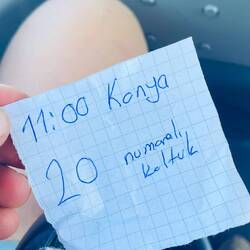 11:00 Konya
20 numaralı
koltuk